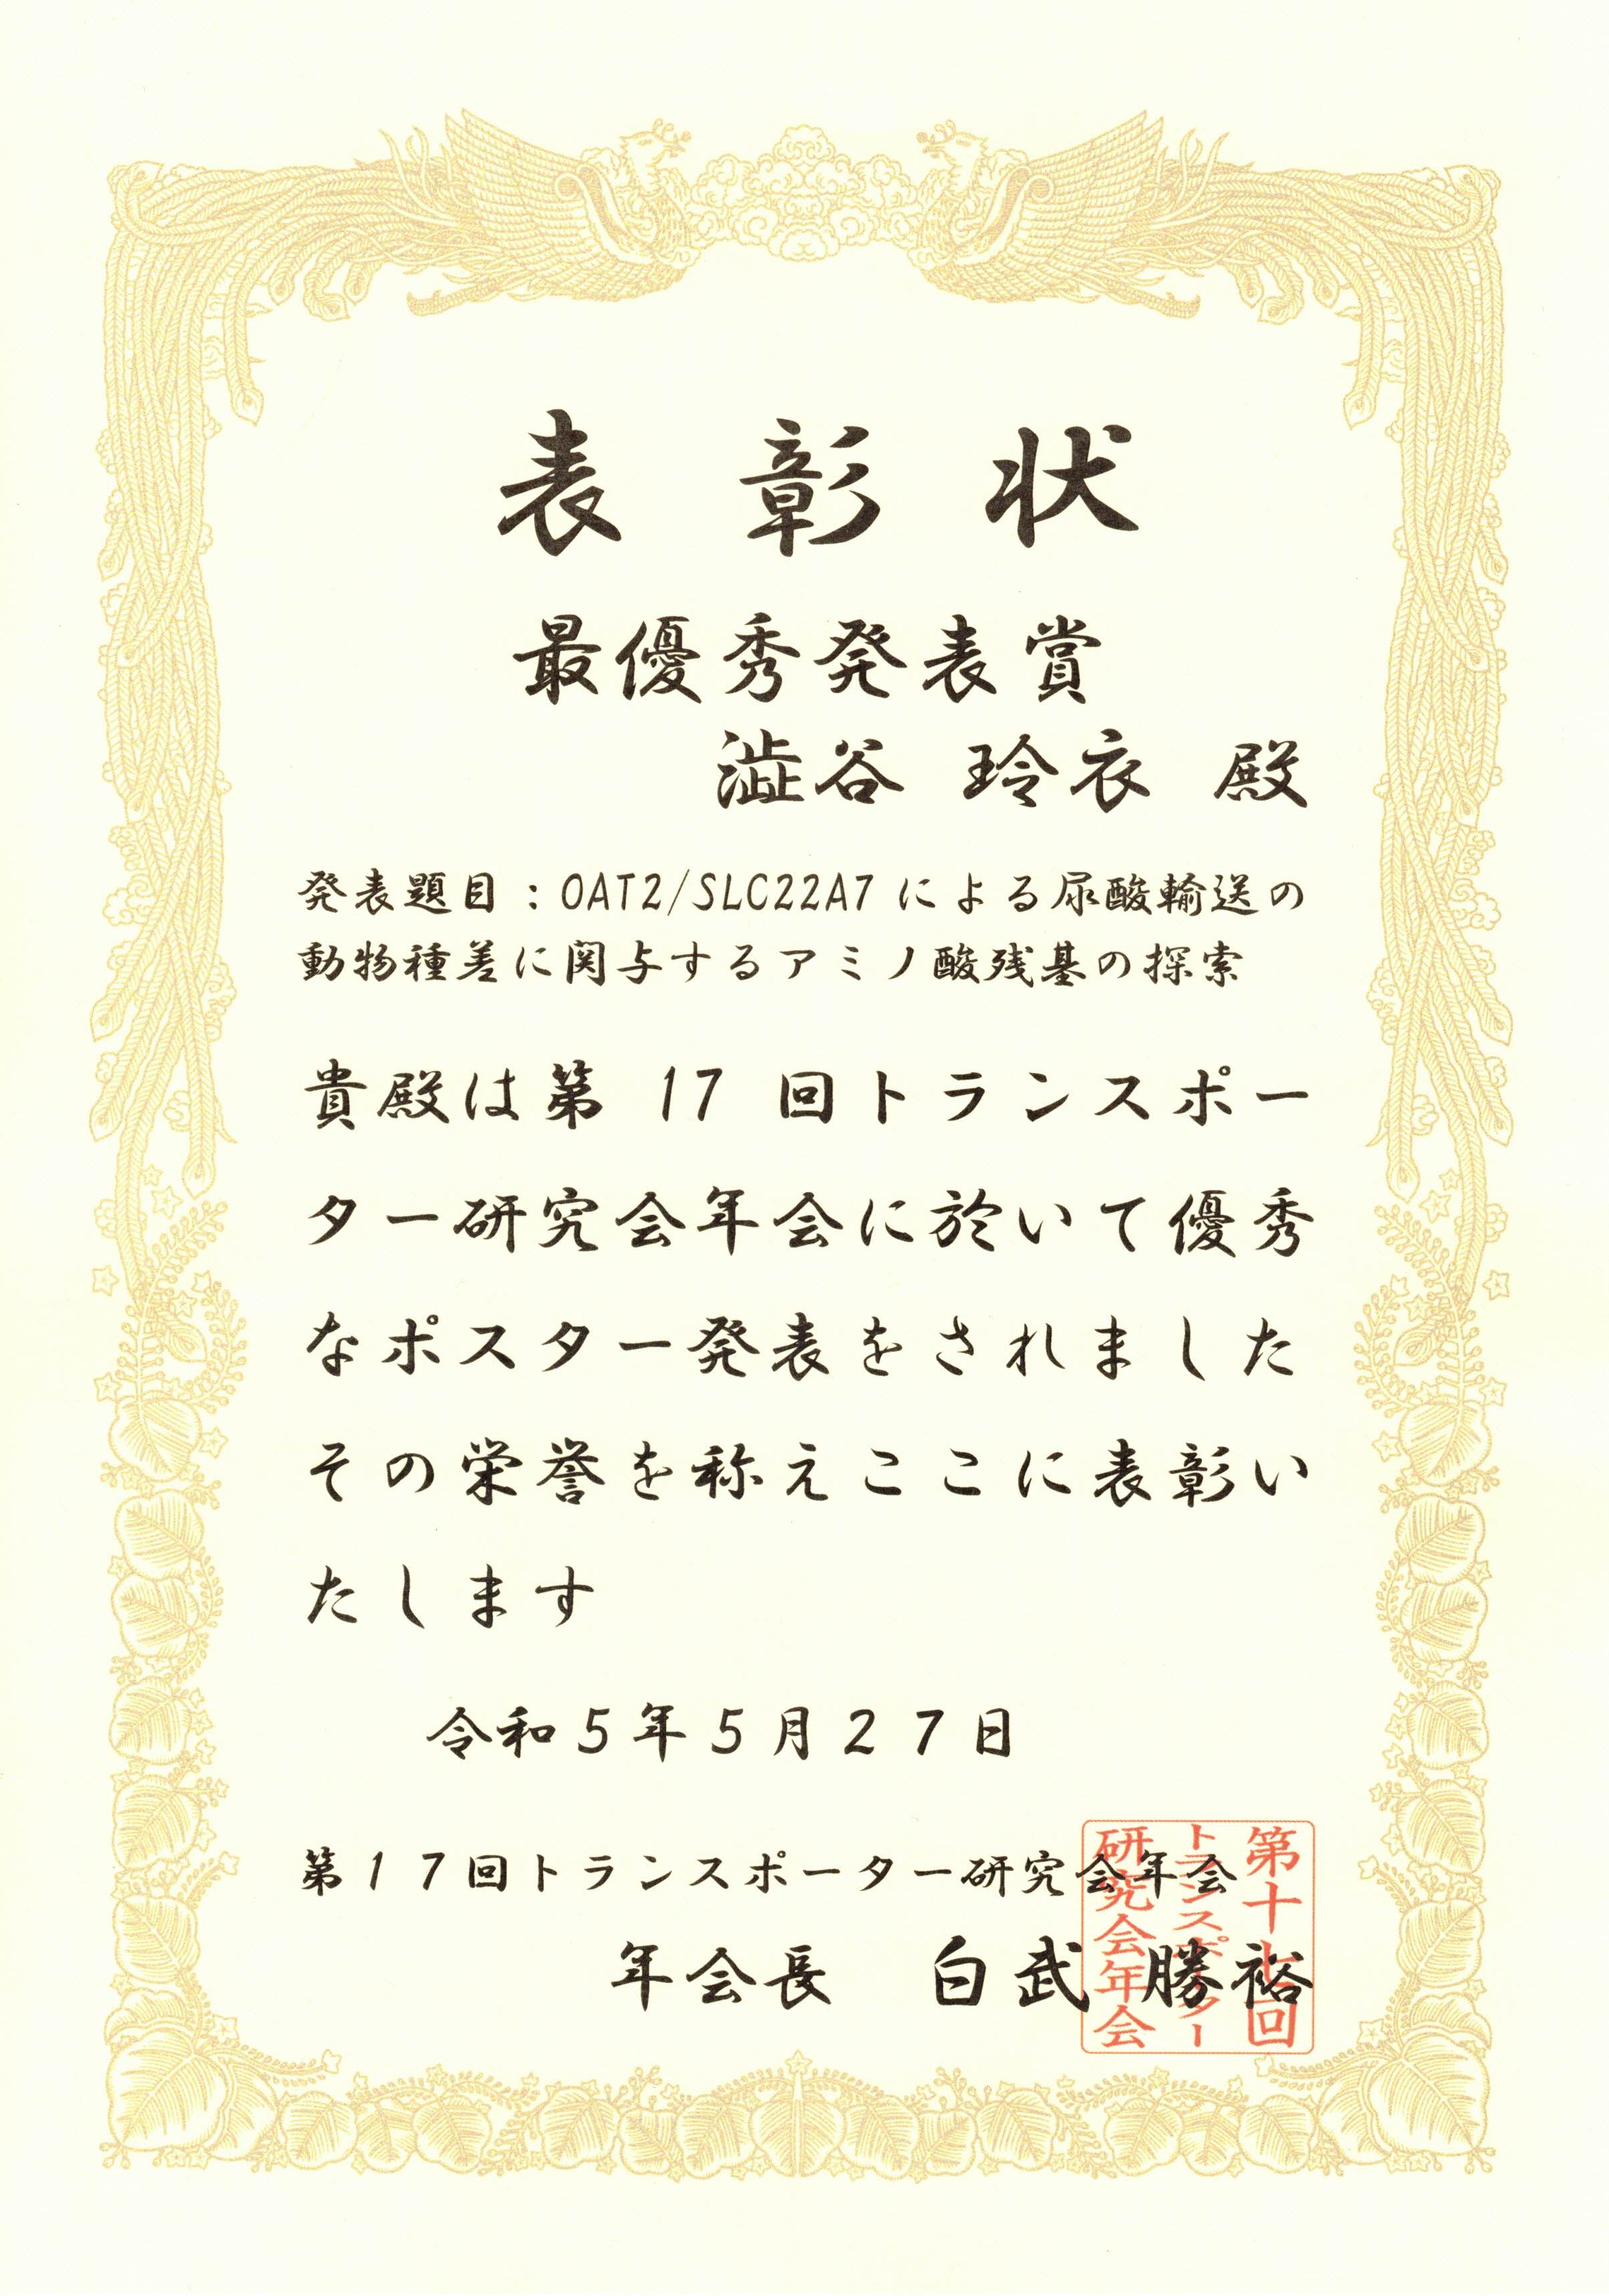 表彰状
最優秀発表賞
澁谷 玲衣 殿
発表題目：OAT2/SLC22A7 による尿酸輸送の
動物種差に関与するアミノ酸残基の探索
貴殿は第 17 回トランスポー
ター研究会年会に於いて優秀
なポスター発表をされました
その栄誉を称えここに表彰い
たします
令和５年５月２７日
第１７回トランスポーター研究会年会
年会長 白武 勝裕
第十七回
トランスポーター
研究会年会